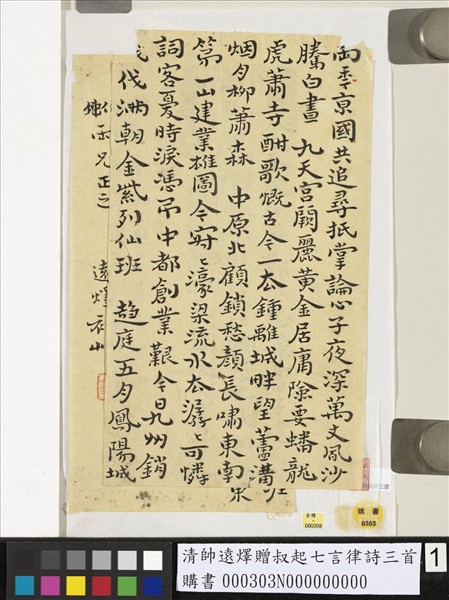 兩秊京國共追尋抵掌論心子夜深萬丈風沙
騰白晝 九天宮闕麗黃金居庸險要蟠龍
虎蕭寺酣歌慨古今一去鍾離城畔望蘆溝
烟月柳蕭森 中原北顧鎖愁顏長嘯東南
第一山建業雄圖今寂〻濠梁流水去潺〻可憐
詞客憂時淚憑弔中都創業艱今日九州銷
伐滿朝金紫列仙班 趨庭五月鳳陽城
雨兄正之 遠燡
購書
000308
購書
0303
清帥遠燡贈叔起七言律詩三首
購書 000303N000000000
1